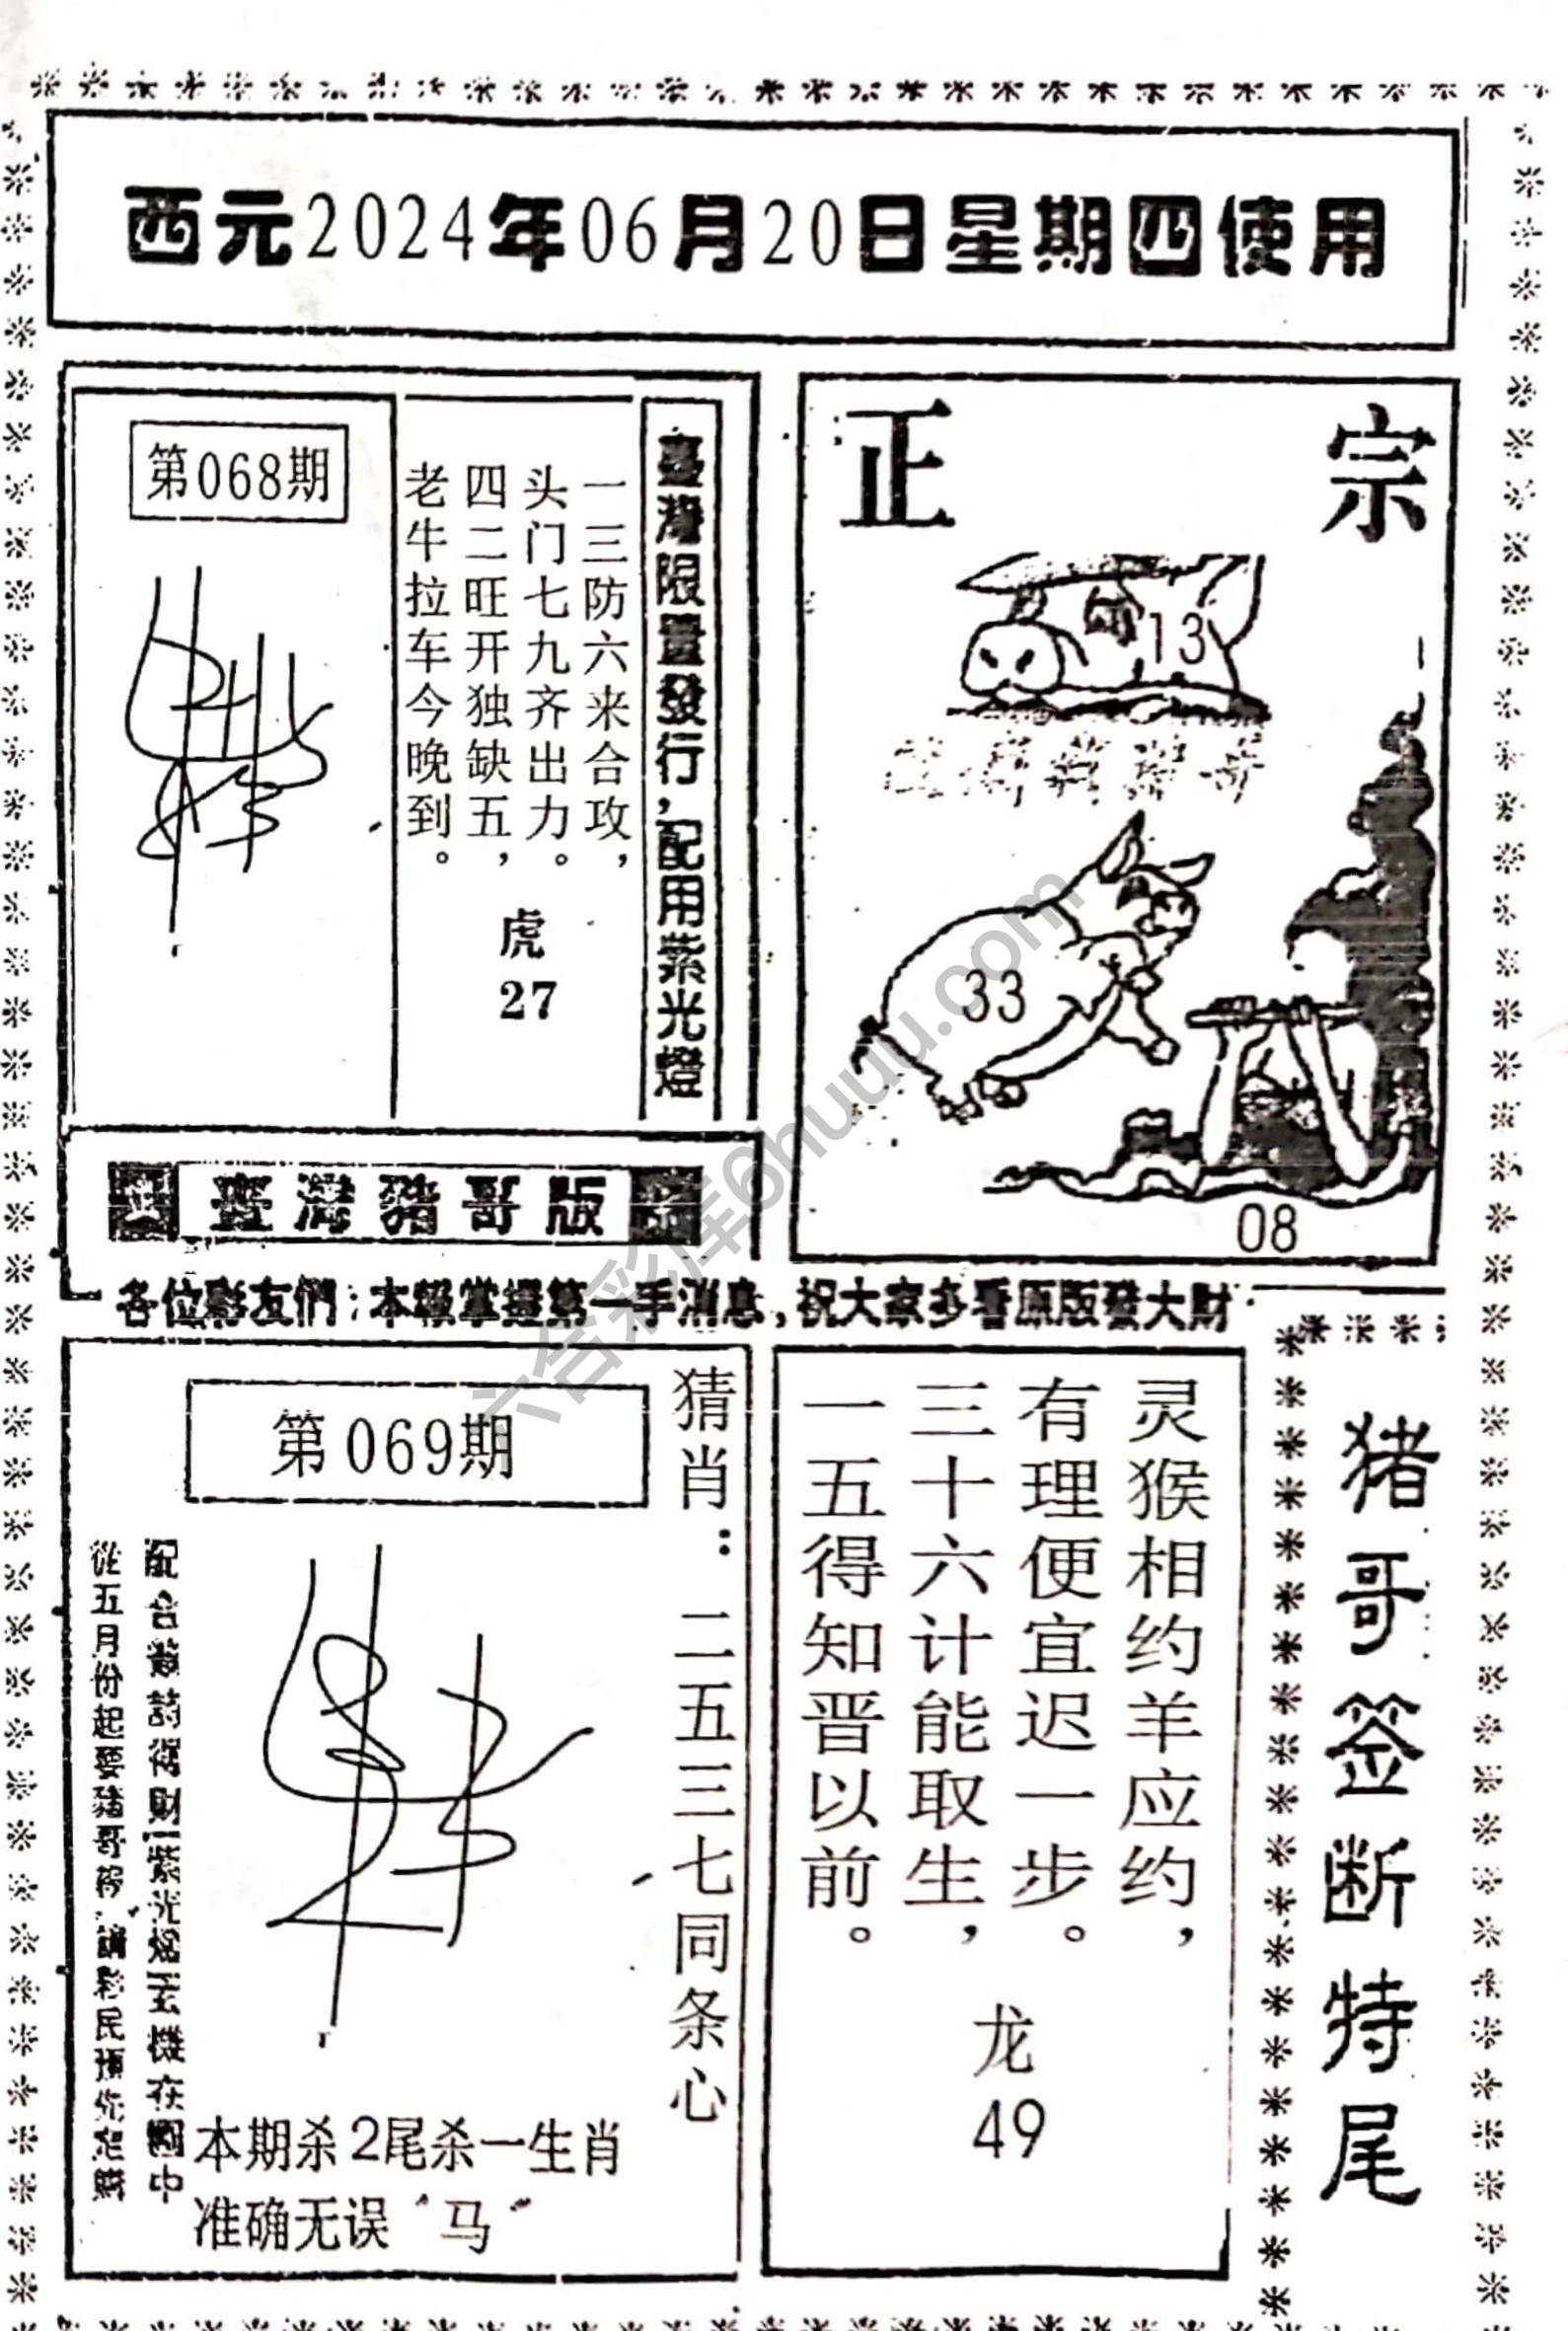 西元2024年06月20日星期四使用
第068期
臺灣限量發行,配用紫光燈
一三防六来合攻，
头门七九齐出力。
四二旺开独缺五，
老牛拉车今晚到。
虎
27
正宗
13
33
08
臺灣豬哥版
各位彩友們:本報掌握第一手消息,祝大家多看原版發大財
第069期
猜肖：二五三七同条心
從五月份起要豬哥
本期杀2尾杀一生肖
准确无误“马”
灵猴相约羊应约，
有理便宜迟一步。
三十六计能取生，
一五得知晋以前。
龙
49
猪哥签断特尾
六合彩库6huuu.com